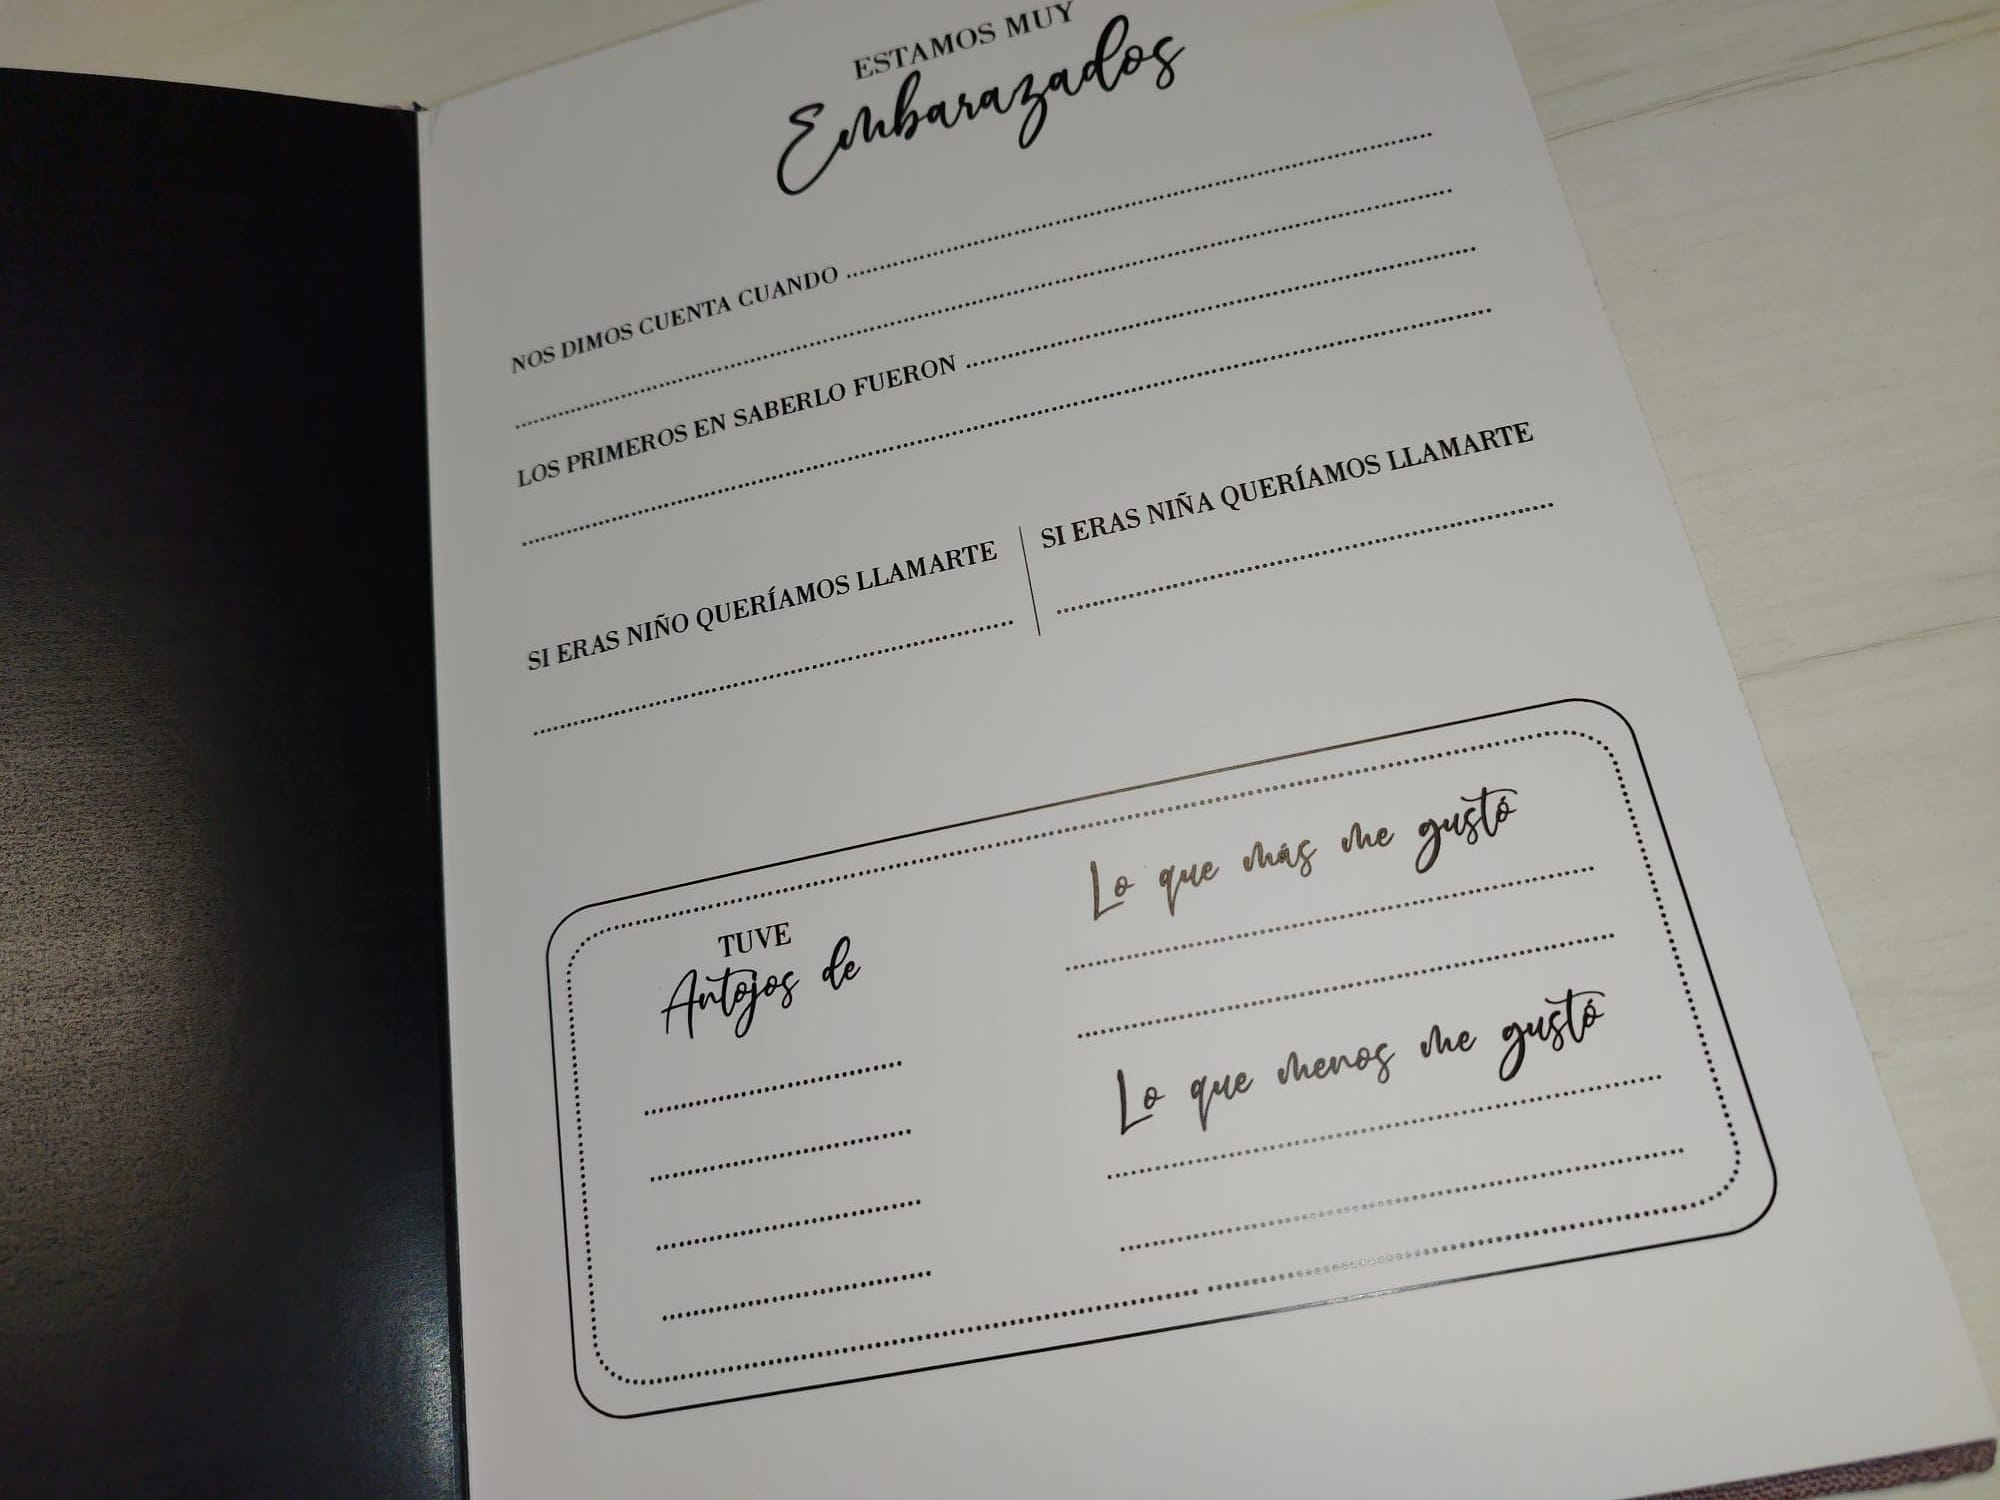 ESTAMOS MUY
Embarazados
NOS DIMOS CUENTA CUANDO
LOS PRIMEROS EN SABERLO FUERON
SI ERAS NIÑO QUERÍAMOS LLAMARTE
SI ERAS NIÑA QUERÍAMOS LLAMARTE
TUVE
Antojos de
Lo que más me gustó
Lo que menos me gustó